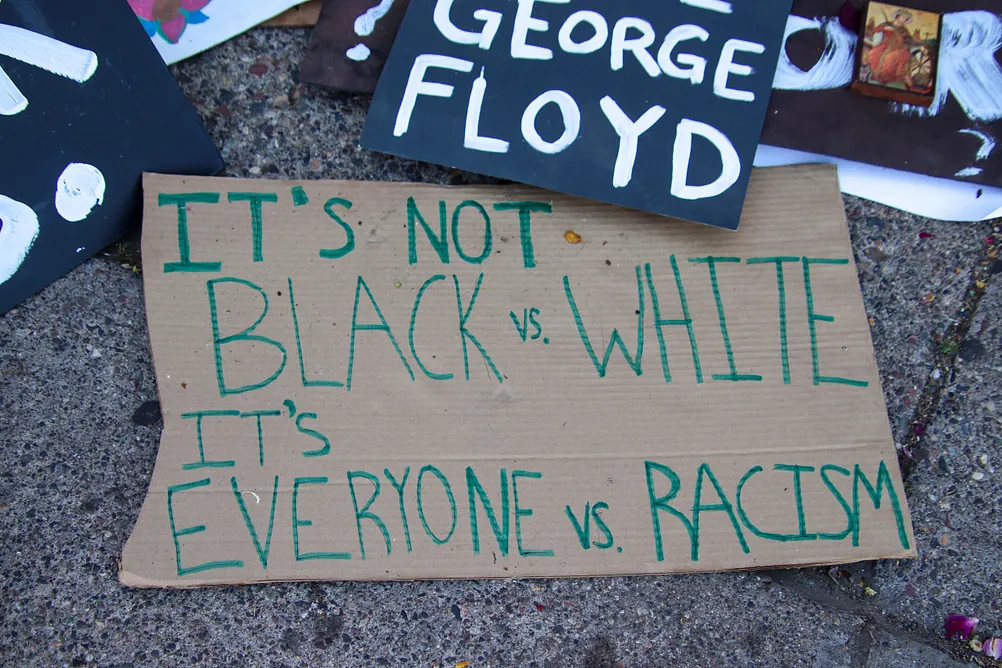 GEORGE
FLOYD
IT'S NOT
BLACK vs. WHITE
IT'S
EVERYONE vs. RACISM